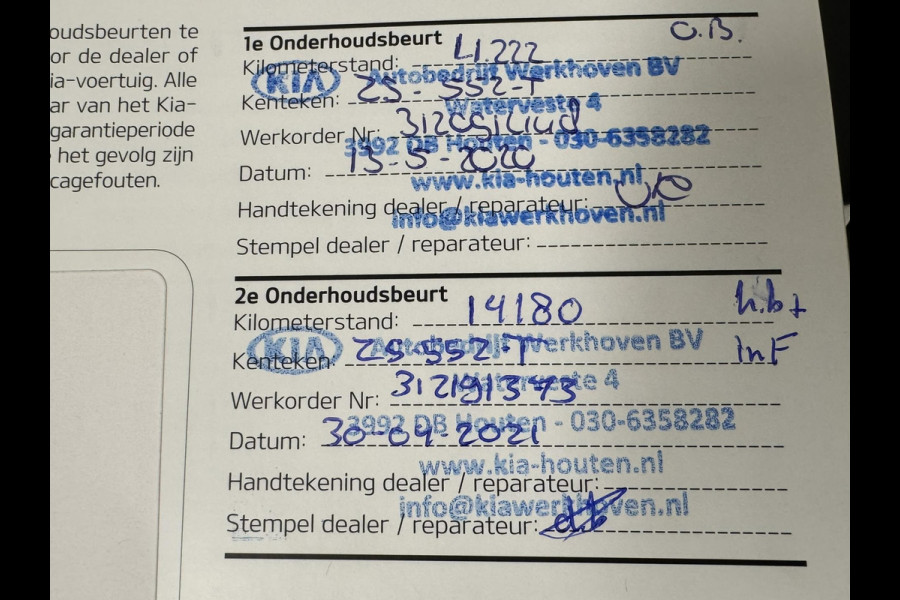 oudsbeurten te
or de dealer of
ia-voertuig. Alle
ar van het Kia-
garantieperiode
het gevolg zijn
cagefouten.
1e Onderhoudsbeurt O.B.
Kilometerstand:
KIA Autobedrijf Werkhoven BV
Kenteken: ZS-552-T
Waterveste 4
Werkorder Nr:
3992 DB Houten - 030-6358282
Datum: 13-5-2020
www.kia-houten.nl
Handtekening dealer / reparateur:
info@kiawerkhoven.nl
Stempel dealer / reparateur:
2e Onderhoudsbeurt
Kilometerstand: 14180
KIA Autobedrijf Werkhoven BV
Kenteken: ZS 552-T
Waterveste 4
Werkorder Nr: 312191373
3992 DB Houten - 030-6358282
Datum: 30-04-2021
www.kia-houten.nl
Handtekening dealer / reparateur:
info@kiawerkhoven.nl
Stempel dealer / reparateur: